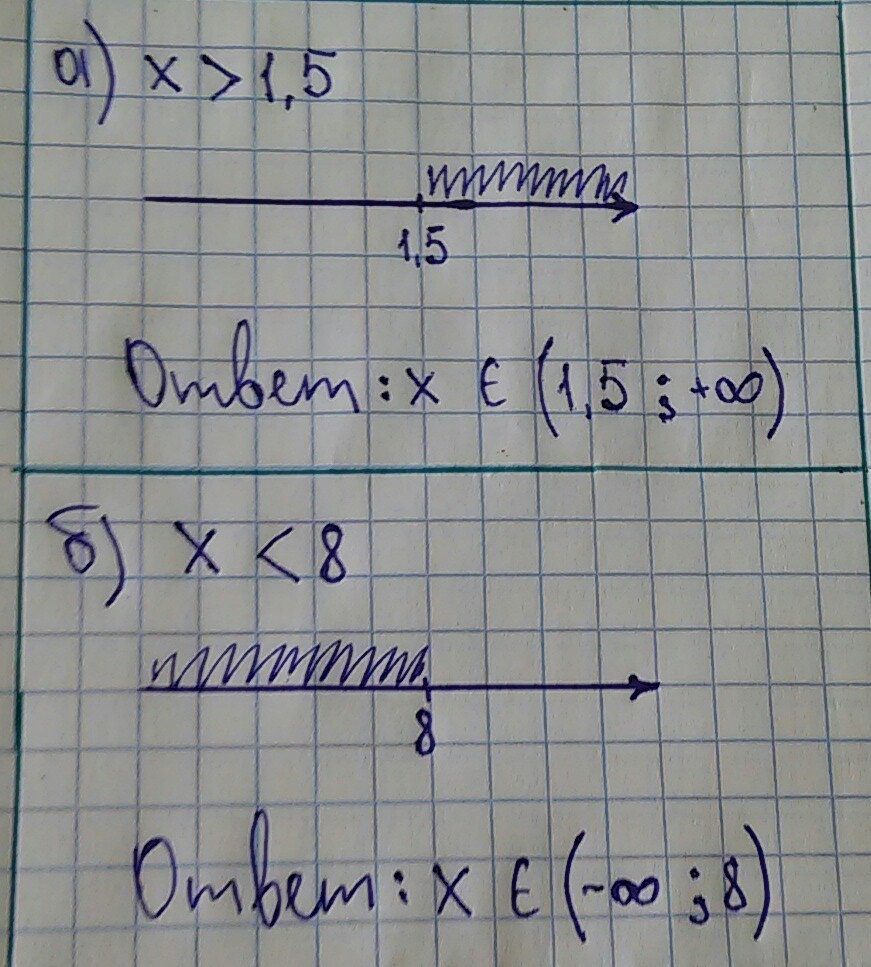 а) x > 1,5
1,5
Ответ: x ∈ (1,5 ; +∞)
б) x < 8
8
Ответ: x ∈ (-∞ ; 8)